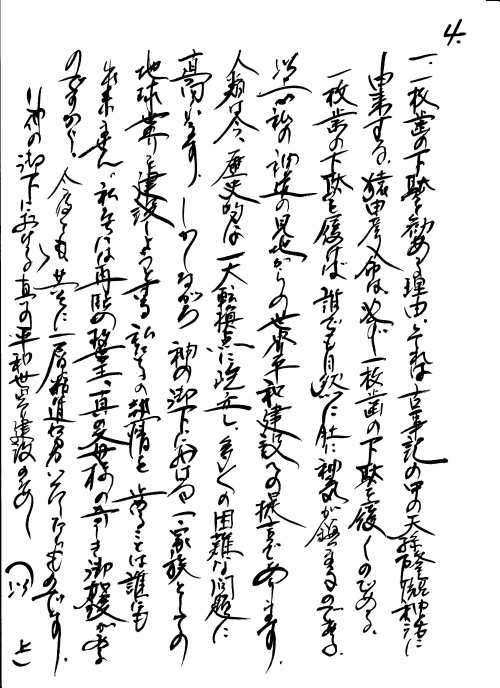 4.
一、一枚歯の下駄を勧める理由、それは古事記の中の天孫降臨神話に
由来する。猿田彦命は、必ず一枚歯の下駄を履くのである。
一枚歯の下駄を履けば誰でも自然に肚に神気が鎮まるのである。
以上が私の神道の見地からの世界平和建設への提言であります。
人類は今、歴史的な一大転換点に際会し、多くの困難な問題に
直面います。しかしながら神の御下に於ける一家族としての
地球世界を建設しようとする私たちの熱情を止めることは誰にも
出来ません。私共には再臨の救世主、真の父母様の尊き御加護がある
のですから。今後とも共に一層精進努力いたしたいものです。
神の御下における真の平和世界建設のために
以上